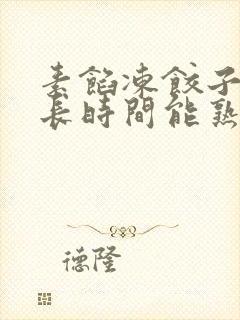 素餡凍餃子
長時間能熟
德隆